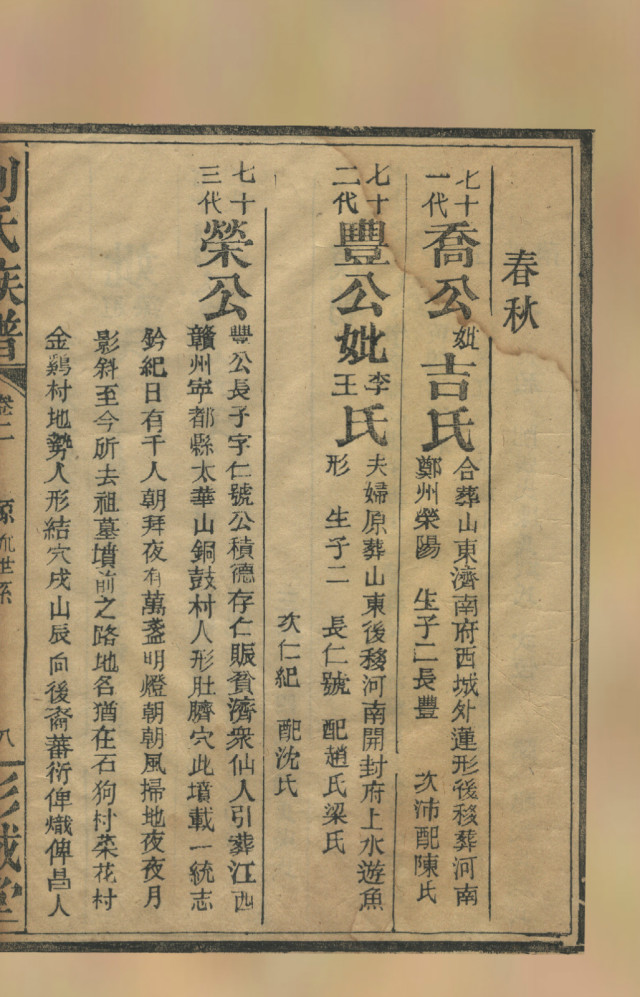 春秋
七十一代喬公妣吉氏
合葬山東濟南府西城外蓮形後移葬河南
鄭州滎陽　生子二長豐　次沛配陳氏
七十二代豐公妣李王氏
夫婦原葬山東後移河南開封府上水遊魚
形　生子二　長仁號　配趙氏梁氏
次仁紀　配沈氏
七十三代榮公
豐公長子字仁號公積德存仁賑貧濟衆仙人引葬江西
贛州寧都縣太華山銅鼓村人形肚臍穴此墳載一統志
鈐紀日有千人朝拜夜有萬盞明燈朝朝風掃地夜夜月
影斜至今所去祖墓墳前之路地名猶在石狗村菜花村
金鷄村地勢人形結穴戌山辰向後裔蕃衍俾熾俾昌人
氏族譜
卷二
源流世系
八
彭城堂